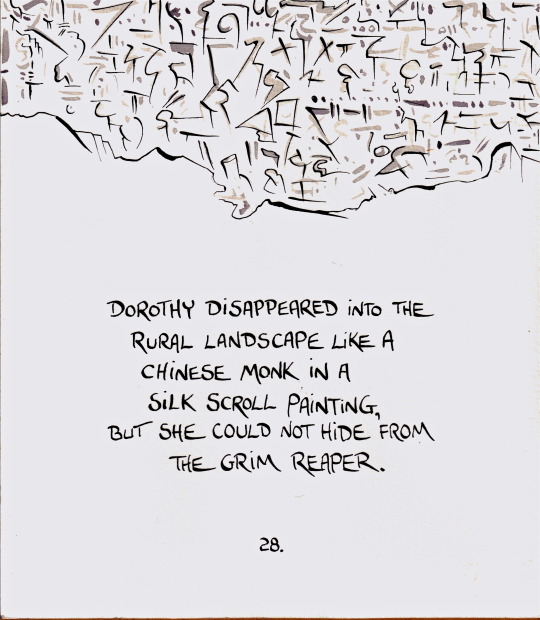 DOROTHY DiSAPPEARED iNTO THE
RURAL LANDSCAPE LiKE A
CHiNESE MONK iN A
SiLK SCROLL PAiNTiNG,
BUT SHE COULD NOT HiDE FROM
THE GRiM REAPER.
28.